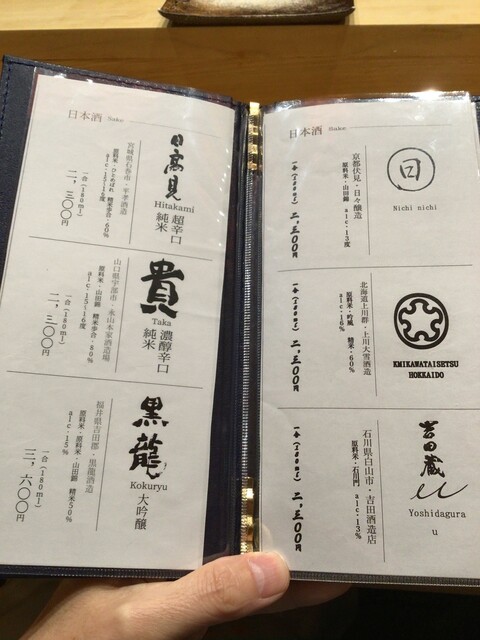 日本酒 Sake
日高見
Hitakami
超辛口
純米
宮城県石巻市・平孝酒造
原料米・ひとめぼれ 精米歩合・60%
alc・15-16度
一合(180ml)
二,三〇〇円
貴
Taka
濃醇辛口
純米
山口県宇部市・永山本家酒造場
原料米・山田錦 精米歩合・80%
alc・15-16度
一合(180ml)
二,三〇〇円
黒龍
Kokuryu
大吟醸
福井県吉田郡・黒龍酒造
原料米・山田錦 精米50%
alc・15%
一合(180ml)
三,六〇〇円
日本酒 Sake
日
Nichi nichi
京都伏見・日々醸造
原料米・山田錦 alc・13度
一合(180ml) 二,三〇〇円
KMIKAWATAISETSU
HOKKAIDO
北海道上川郡・上川大雪酒造
原料米・吟風 精米・60%
alc・16%
一合(180ml) 二,三〇〇円
吉田蔵
u
Yoshidagura
u
石川県白山市・吉田酒造店
原料米・石川門 alc・13%
一合(180ml) 二,三〇〇円